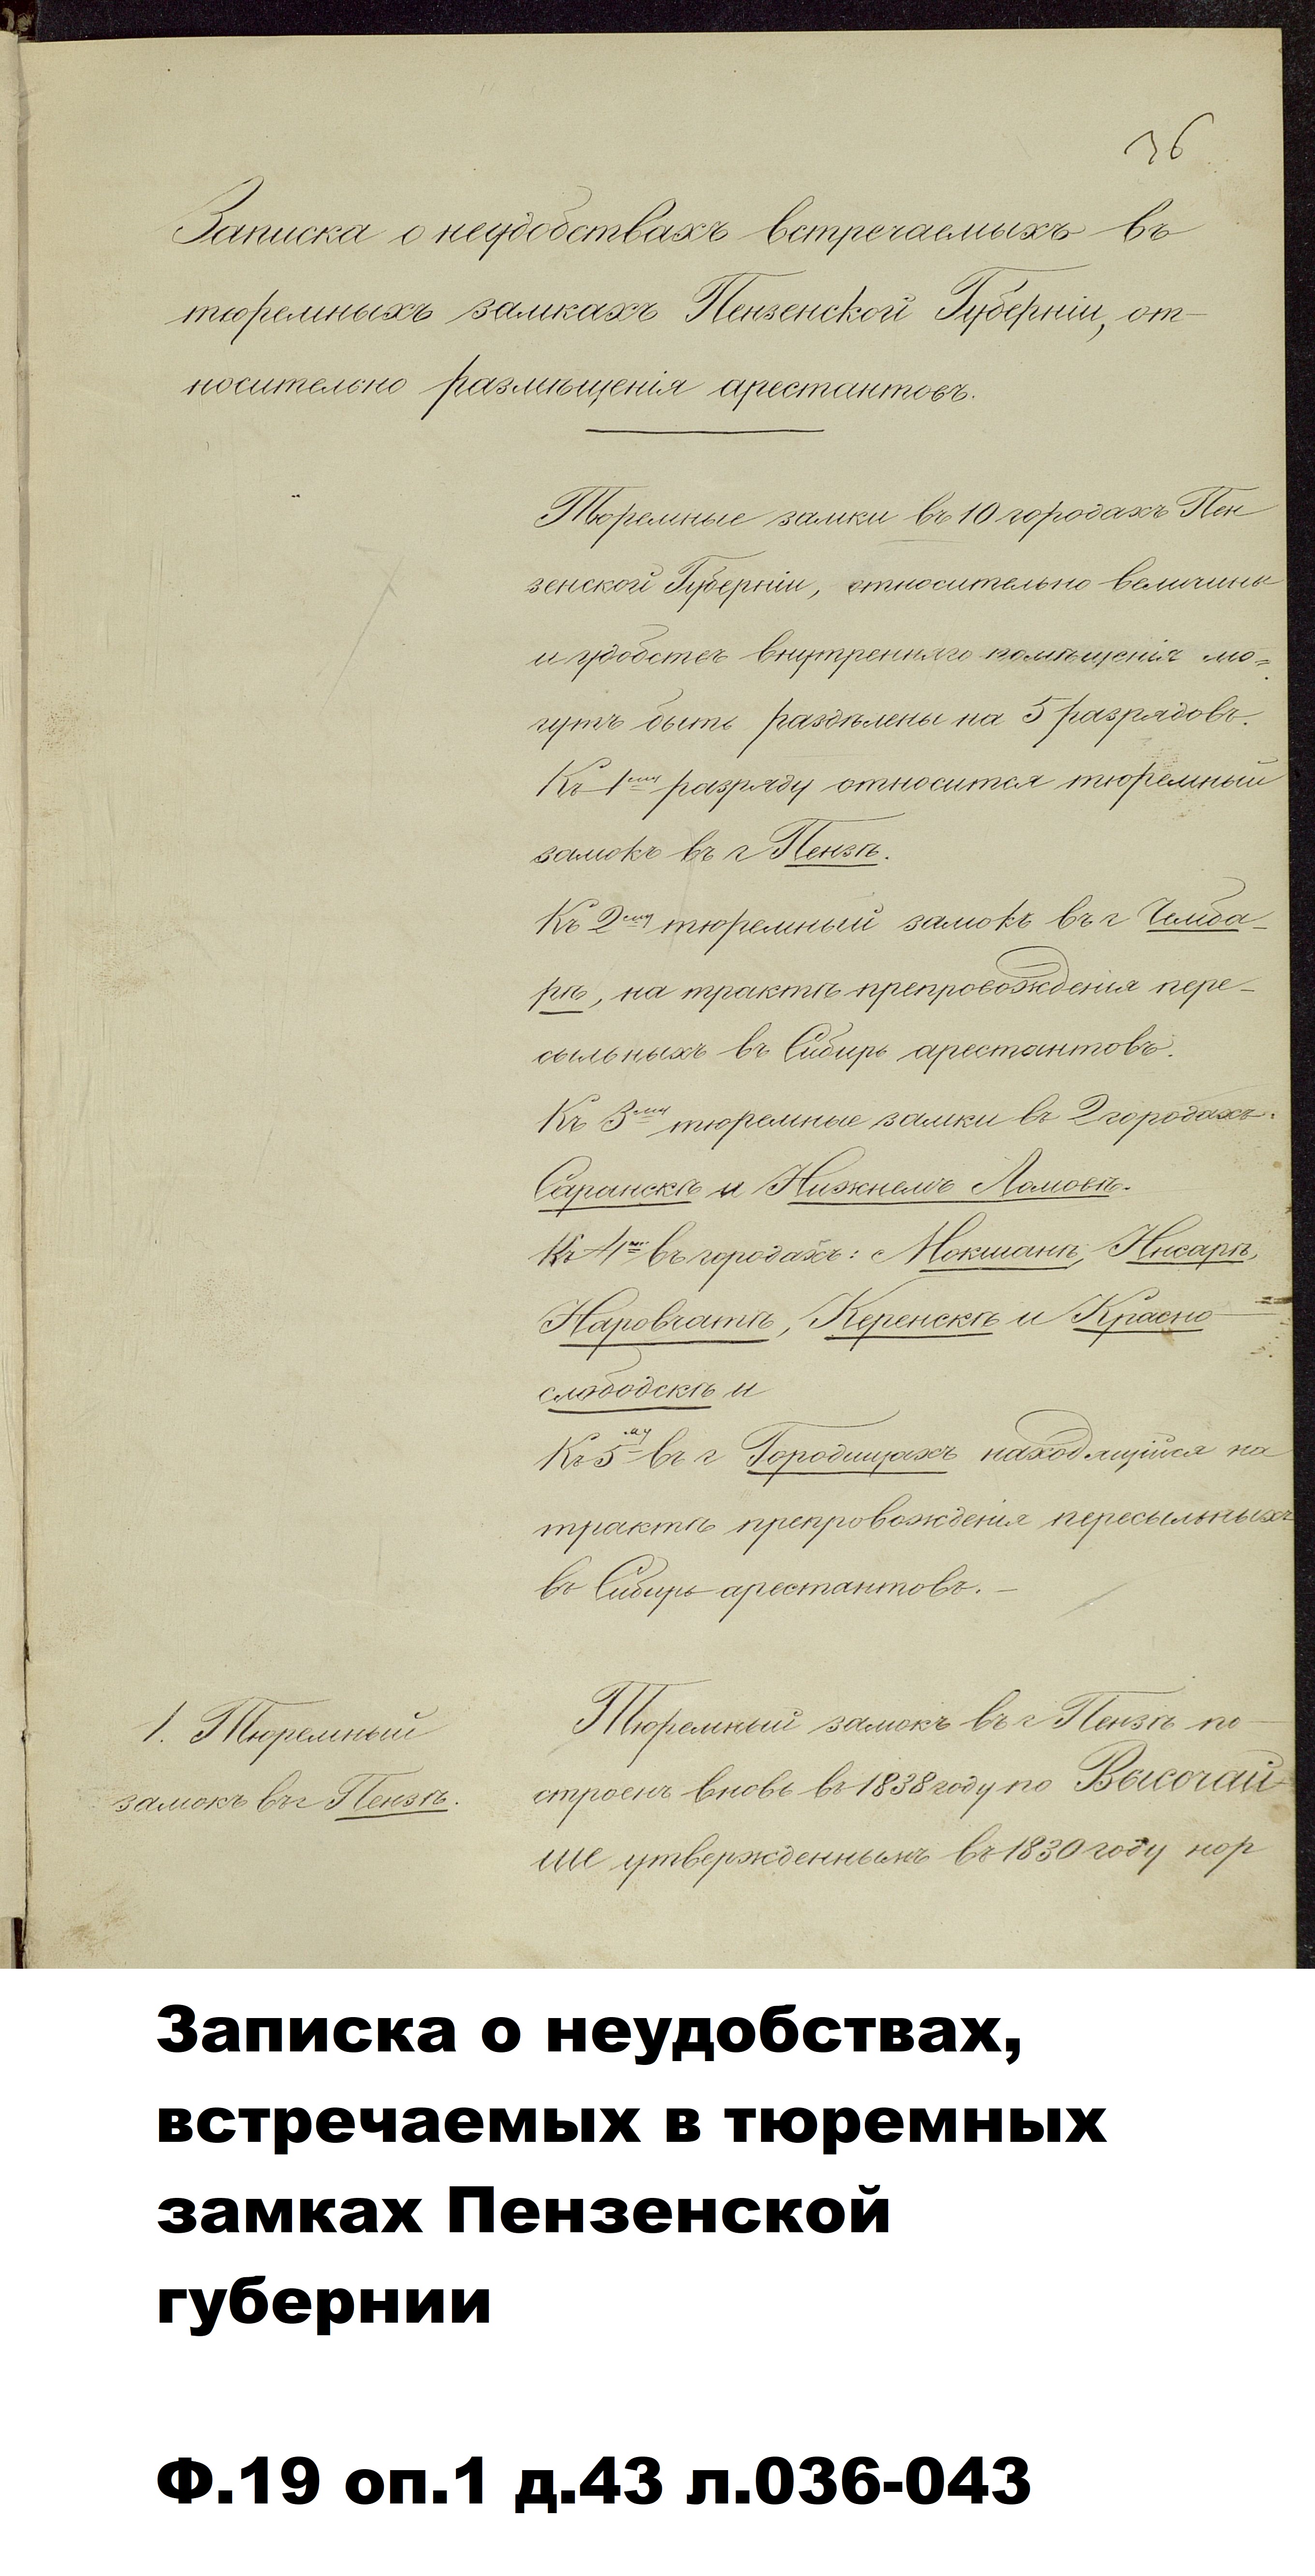 36
Записка о неудобствахъ встречаемыхъ въ
тюремныхъ замкахъ Пензенской Губерніи, от-
носительно размѣщенія арестантовъ.
Тюремные замки въ 10 городахъ Пен
зенской Губерніи, относительно величины
и удобствъ внутренняго помѣщенія мо=
гутъ быть раздѣлены на 5 разрядовъ.
Къ 1му разряду относится тюремный
замокъ въ г Пензѣ.
Къ 2му тюремный замокъ въ г Чемба-
рѣ, на трактѣ препровожденія пере-
сыльныхъ въ Сибирь арестантовъ.
Къ 3му тюремные замки въ 2 городахъ:
Саранскѣ и Нижнемъ Ломовѣ.
Къ 4му въ городахъ: Мокшанѣ, Инсарѣ,
Наровчатѣ, Керенскѣ и Красно
слободскѣ и
Къ 5му въ г Городищахъ находящійся на
трактѣ препровожденія пересыльныхъ
въ Сибирь арестантовъ. -
1. Тюремный
замокъ въ г Пензѣ.
Тюремный замокъ въ г Пензѣ по-
строенъ вновь въ 1838 году по Высочай
ше утвержденнымъ въ 1830 году нор
Записка о неудобствах,
встречаемых в тюремных
замках Пензенской
губернии
Ф.19 оп.1 д.43 л.036-043